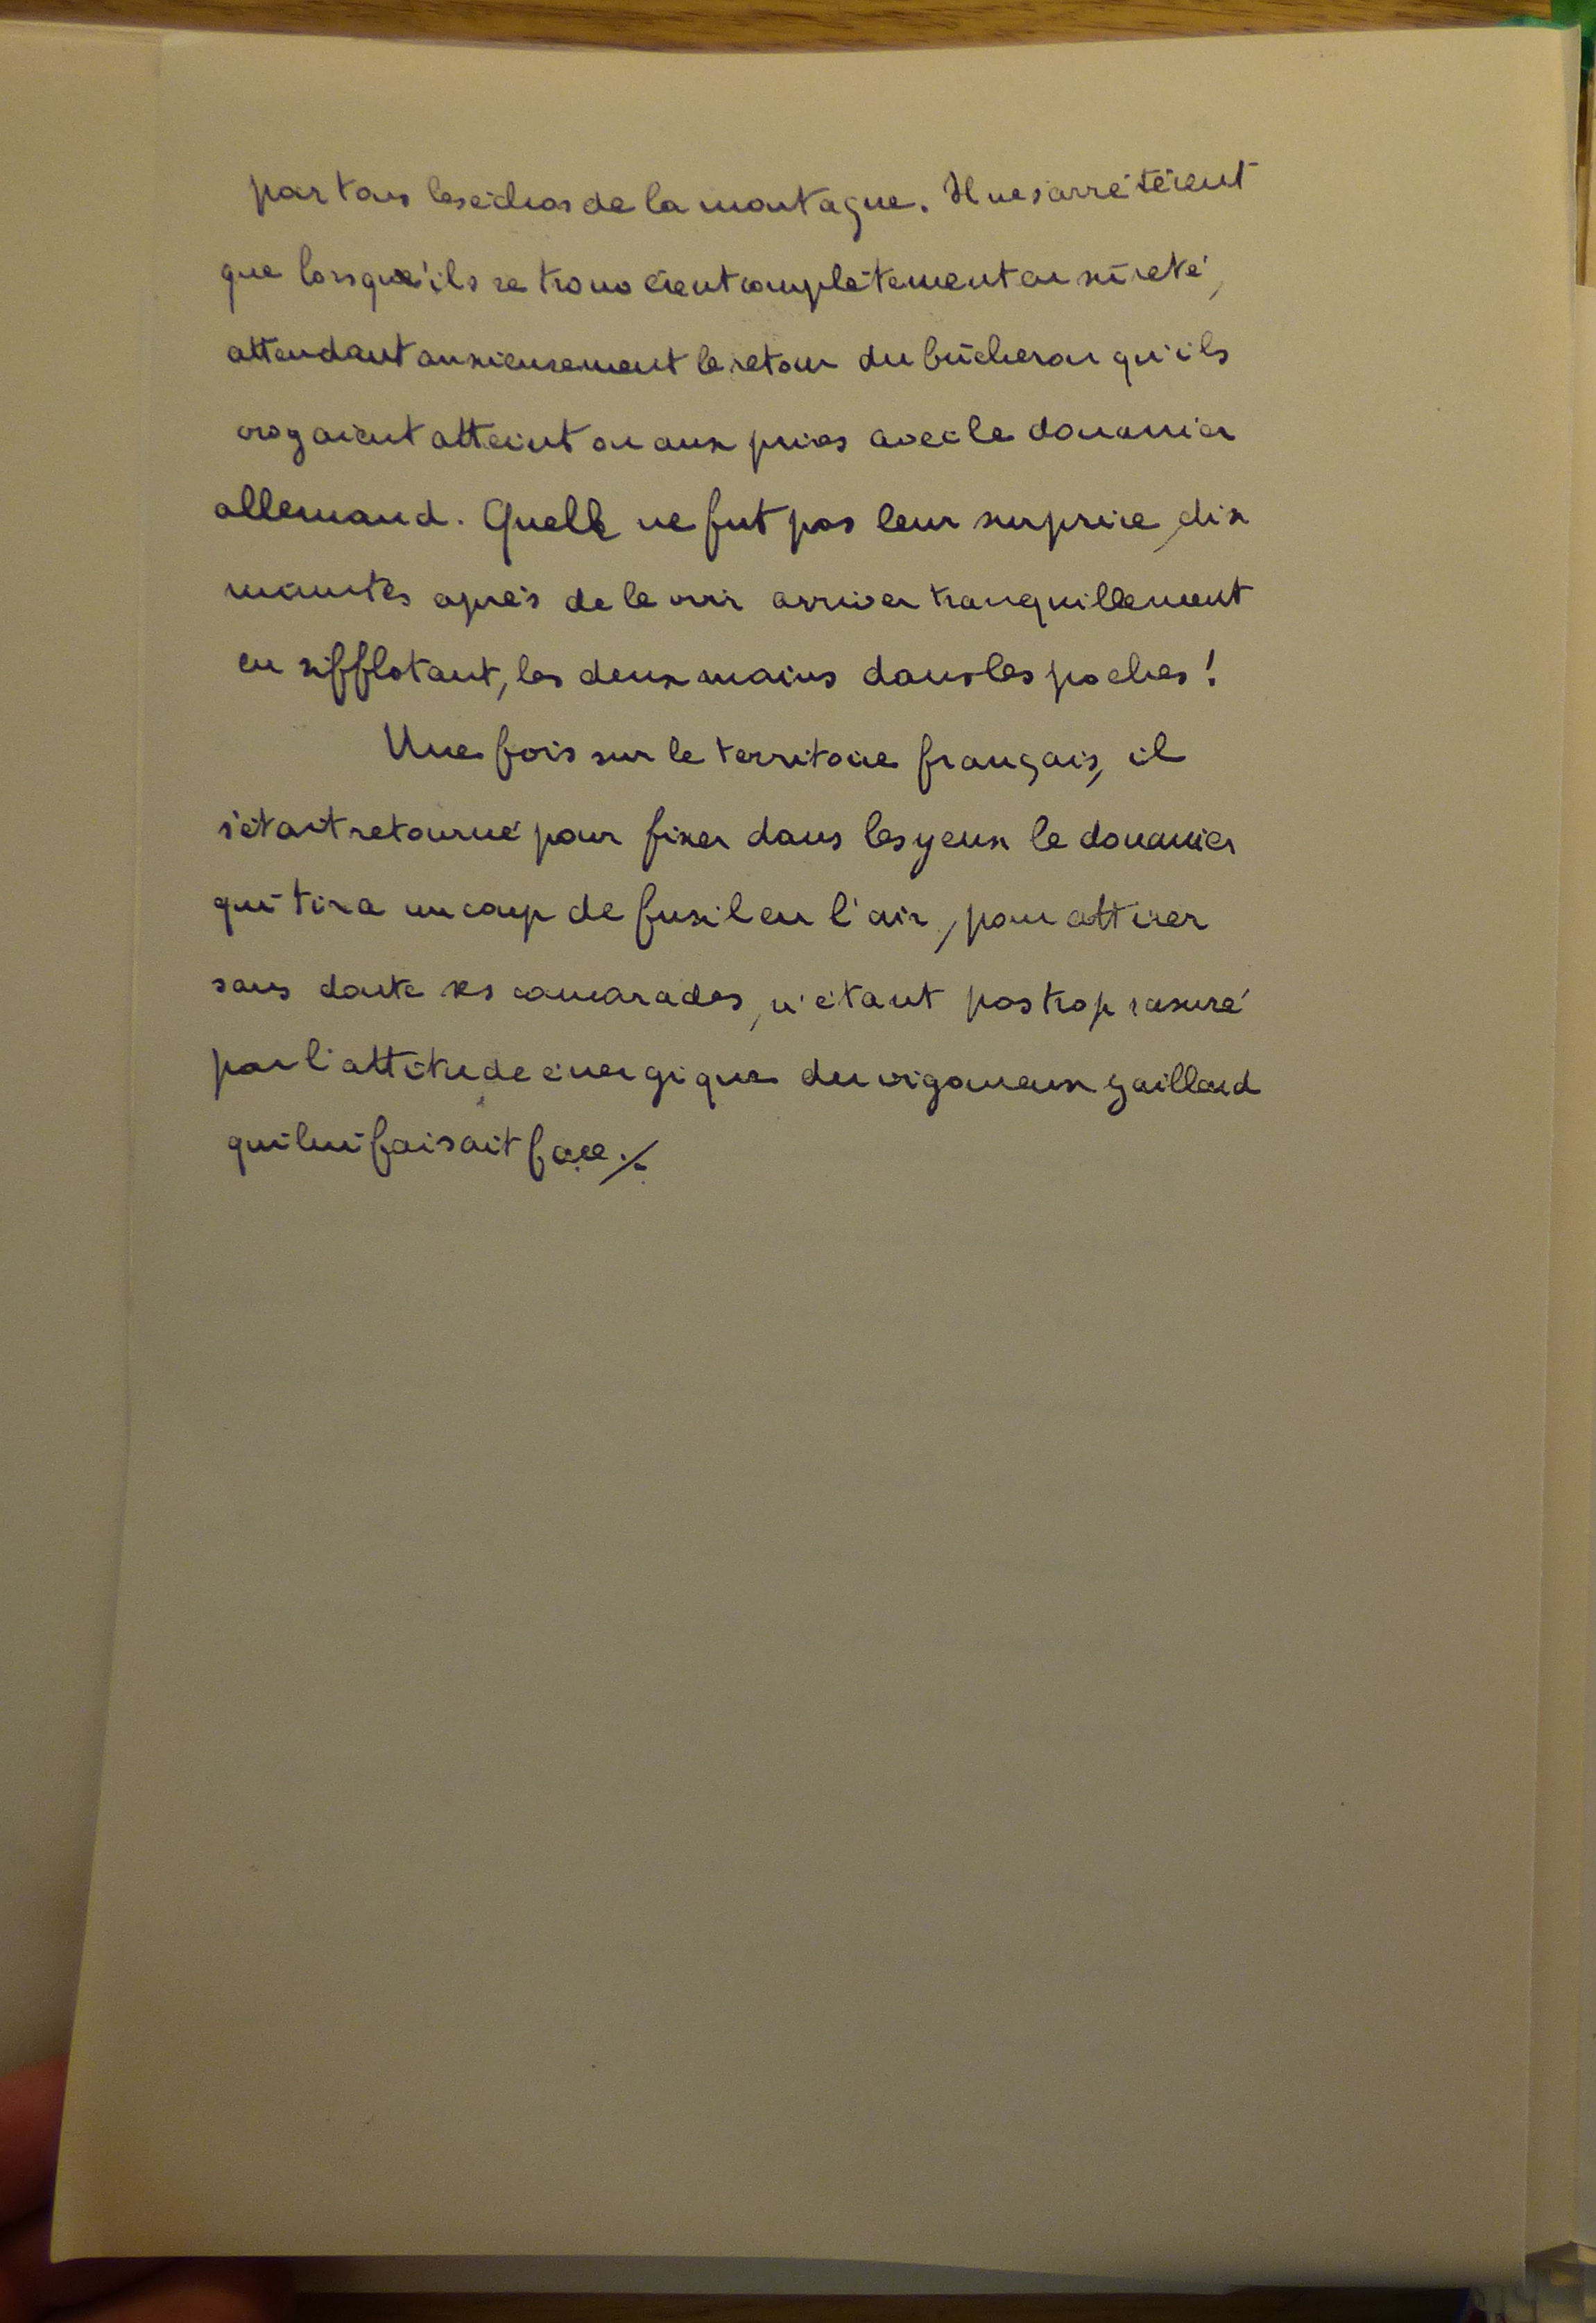 par tous les échos de la montagne. Il ne s'arrêtèrent
que lorsqu'ils se trouvèrent complètement en sûreté,
attendant anxieusement le retour du bûcheron qu'ils
croyaient atteint ou aux prises avec le douanier
allemand. Quelle ne fut pas leur surprise, dix
minutes après de le voir arriver tranquillement
en sifflotant, les deux mains dans les poches !
Une fois sur le territoire français, il
s'était retourné pour fixer dans les yeux le douanier
qui tira un coup de fusil en l'air, pour attirer
sans doute ses camarades, n'étant pas trop rassuré
par l'attitude énergique du vigoureux gaillard
qui lui faisait face ./.